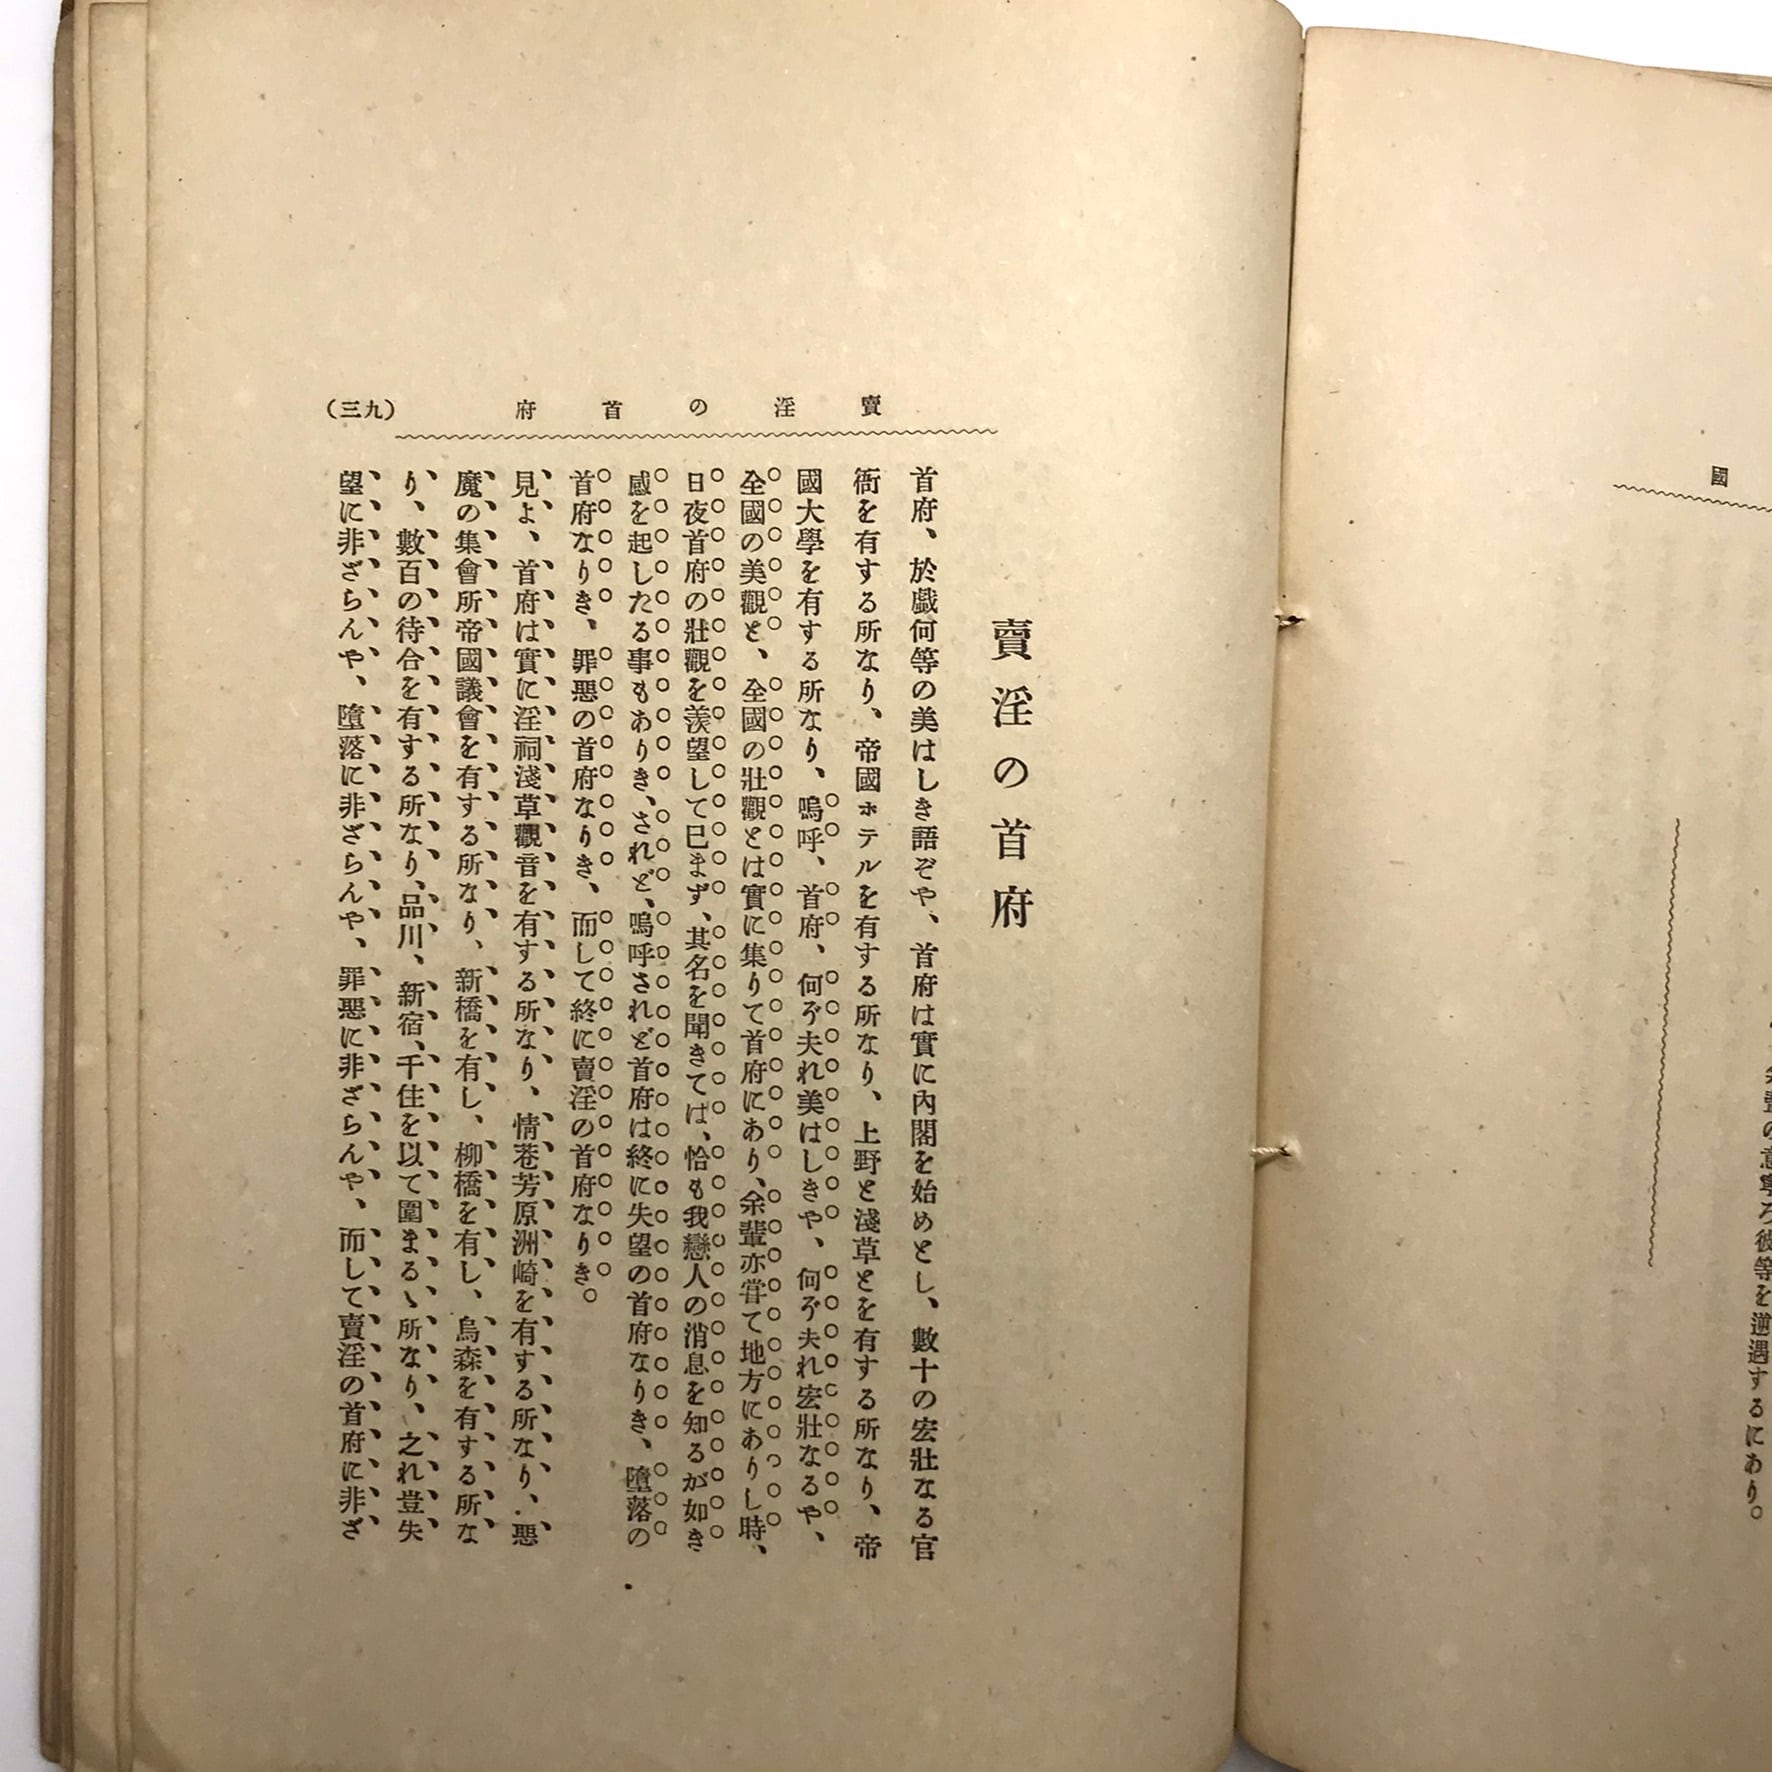 國
余輩の意寧ろ彼等を遭遇するにあり。
賣淫の首府
(三九)
賣淫の首府
首府、於戯何等の美はしき語ぞや、首府は實に內閣を始めとし、數十の宏壯なる官
衙を有する所なり、帝國ホテルを有する所なり、上野と淺草とを有する所なり、帝
國大學を有する所なり、嗚呼、首府、何ぞ夫れ美はしきや、何ぞ夫れ宏壯なるや、
全國の美觀と、全國の壯觀とは實に集りて首府にあり、余輩亦甞て地方にありし時、
日夜首府の壯觀を羨望して已まず、其名を聞きては、恰も我戀人の消息を知るが如き
感を起したる事もありき、されど、嗚呼されど首府は終に失望の首府なりき、墮落の
首府なりき、罪惡の首府なりき、而して終に賣淫の首府なりき。
見よ、首府は實に淫祠淺草觀音を有する所なり、情巷芳原洲崎を有する所なり、惡
魔の集會所帝國議會を有する所なり、新橋を有し、柳橋を有し、烏森を有する所な
り、數百の待合を有する所なり、品川、新宿、千住を以て圍まるゝ所なり、之れ豈失
望に非ざらんや、墮落に非ざらんや、罪惡に非ざらんや、而して賣淫の首府に非ざ